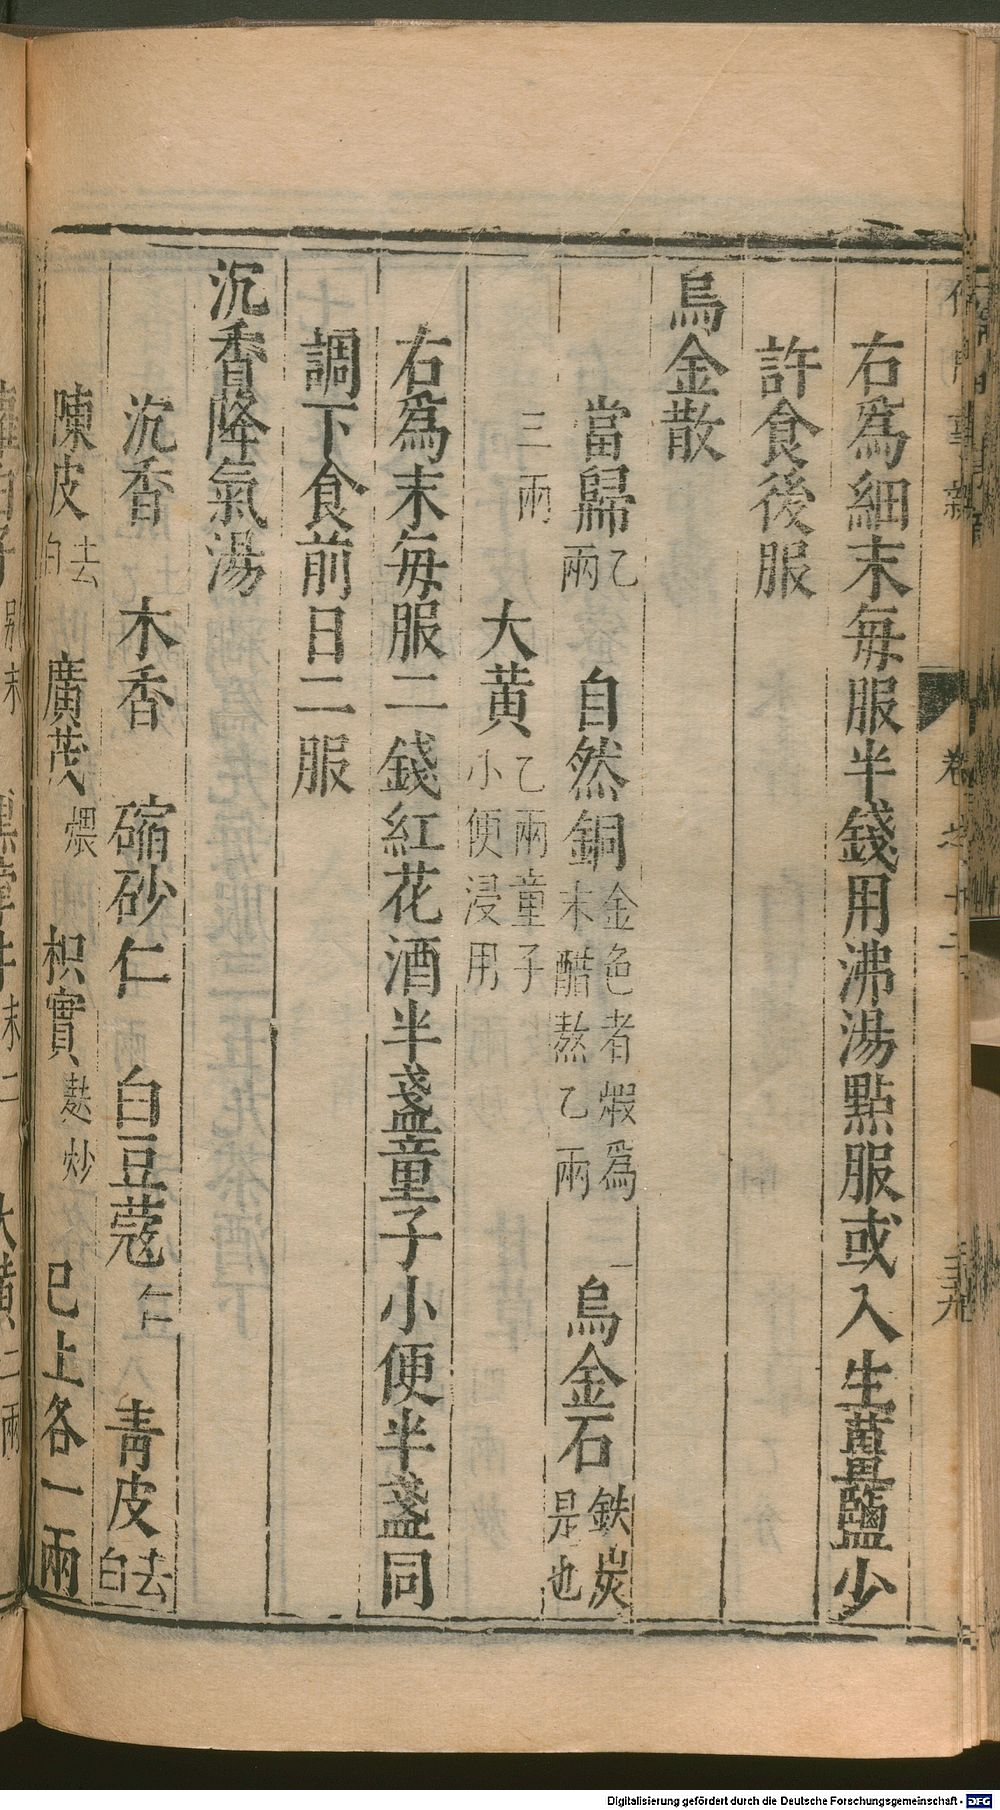 右爲細末每服半錢用沸湯點服或入生薑鹽少
許食後服
烏金散
當歸乙兩 自然銅金色者煅爲末醋熬乙兩 烏金石鉄炭是也
三兩 大黃乙兩童子小便浸用
右爲末每服二錢紅花酒半盞童子小便半盞同
調下食前日二服
沉香降氣湯
沉香 木香 縮砂仁 白豆蔻仁 青皮去白
陳皮去白 廣茂煨 枳實麸炒 已上各一兩
卷之十二
三十九
Digitalisierung gefördert durch die Deutsche Forschungsgemeinschaft - DFG